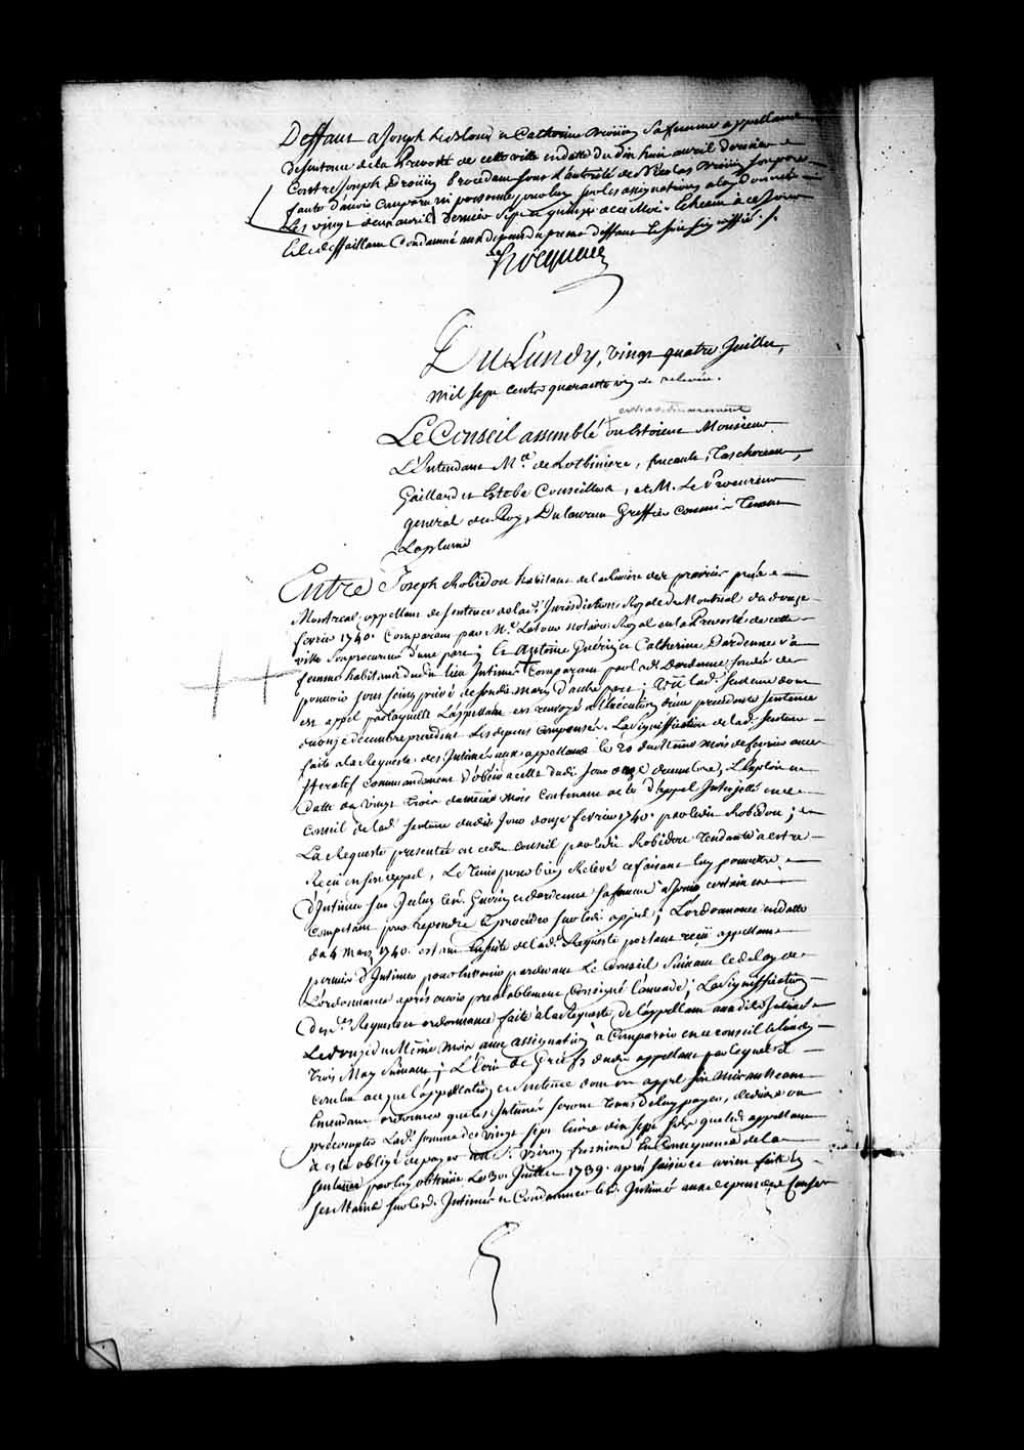 Deffaut a Joseph LeBlond et Catherine Drouin sa femme appellans
de sentence de la Prevosté de cette ville en datte du dix huit avril dernier
Contre Joseph Drouin Procedant sous l'autorité de Nicolas Drouin son pere
faute d'avoir comparu ni personne pour luy sur les assignations a luy données
Les vingt deux avril dernier Sept et quinze de ce Mois Echeant a ce Jour
Led. deffaillant Condamné aux depens du present deffaut
Hocquart
Du Lundy, vingt quatre Juillet,
mil sept cents quarante de relevée.
extraordinairement
Le Conseil assemblé ou Estoient Monsieur
L'Intendant Me. de Lotbiniere, foucault, Taschereau,
Gaillard et Estebe Conseillers, et M. Le Procureur
general du Roy, Dulaurent Greffier commis Tenant
La plume
Entre Joseph Robidou habitant de la prairie près
Montreal, appellant de sentence de la d. Jurisdiction Royale de Montreal du douze
fevrier 1740. Comparant par Me. Latour notaire Royal en la Prevosté de cette
ville son procureur d'une part; Et Antoine Guérin et Catherine Dardenne sa
femme habitans dud. lieu Intimés Comparans par lad. Dardenne fondée de
pouvoir sous seing privé de sond. mary d'autre part; Vû lad. sentence dont
est appel par laquelle L'appellant est renvoyé a l'execution d'une precedente sentence
du onze decembre precedent Les depens compensés. La Signiffication de lad. sentence
faite a la Requeste des Intimés aux appellant le 20 du mesme mois de fevrier avec
Iteratif commandement d'obeir a celle dudit Jour onze decembre, L'Exploit en
datte du vingt trois du mesme mois Contenant acte d'appel Interjetté en ce
Conseil de lad. sentence dudit Jour douze fevrier 1740. par ledit Robidou;
La Requeste presentée en cedit Conseil par ledit Robidou Tendante a estre
Reçu en son appel, Le tenir pour bien Relevé ce faisant luy permettre
d'Intimer sur Iceluy led. Guerin et dardenne sa femme a Jour certain et
competant pour repondre et proceder sur led. appel; L'ordonnance en datte
du 4 Mars 1740. estant ensuite de lad. Requeste portant reçu appellant
permis d'Intimer pour en venir pardevant Le Conseil Suivant le delay de
L'ordonnance après avoir prealablement Consigné l'amende; La Signiffication
desd. Requeste et ordonnance faite a la Requeste de l'appellant aux dits Intimés
Le du Mesme mois avec assignation a Comparoir en ce conseil le lundy
trois May Suivant; L'Ecrit de Griefs dudit appellant par lequel il
conclut a ce que l'appellation et sentence dont est appel soit mis au Neant
Emendant ordonner que les Intimés seront tenus de luy payer, deduire ou
précompter Lad. somme de vingt sept livres dix sept sols que led. appellant
a esté obligé de payer au S. fresniere En consequence de la
sentence par luy obtenüe Le 30. Juillet 1739. après saisie et arrest faite en
ses Mains sur lesd. Intimés et Condamner led. Intimé aux depens des Causes